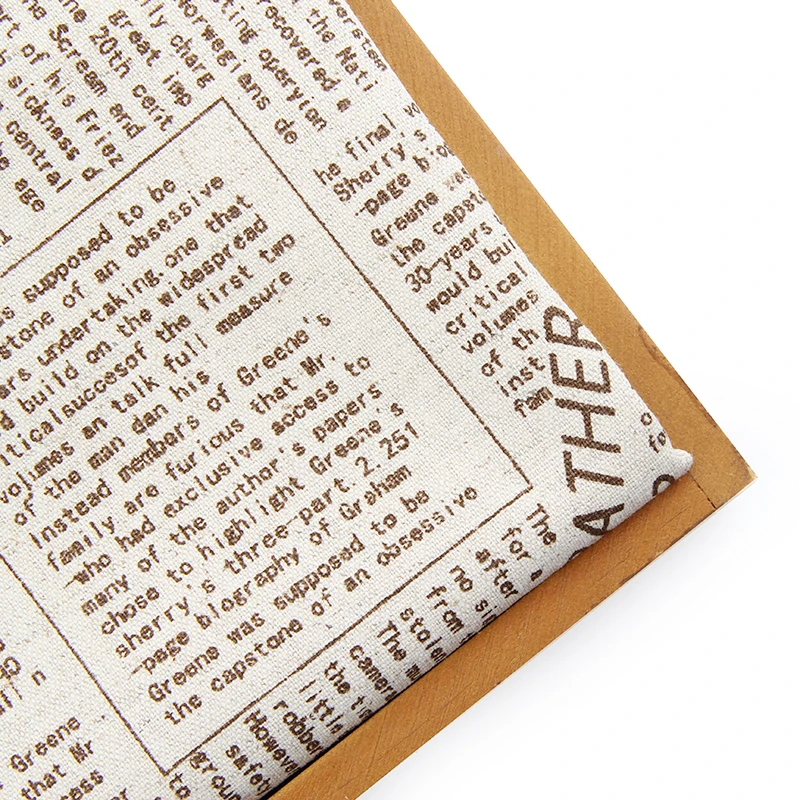 Scream and
20th cent
Great two
of his Friez
sickness
central
age
Norwegians de
recovered a
the Nati
he final
Sherry's
-page
Greene
the capst
30-years
would bui
critical
volumes
of th
inst
fam
ATHER
supposed to be
stone of an obsessive
undertaking.one that
build on the widespread
iticalsuccesof the first two
volumes an talk full measure
of the man dan his
Instead members of Greene's
family are furious that Mr.
who had exclusive access to
many of the author's papers
chose to highlight Greene's
sherry's three-part.2.251
-page biography of Graham
Greene was supposed to be
the capstone of an obsessive
The
for a
after
no
from
stolen
The
the
little
robber
However
safety
Greene
that Mr